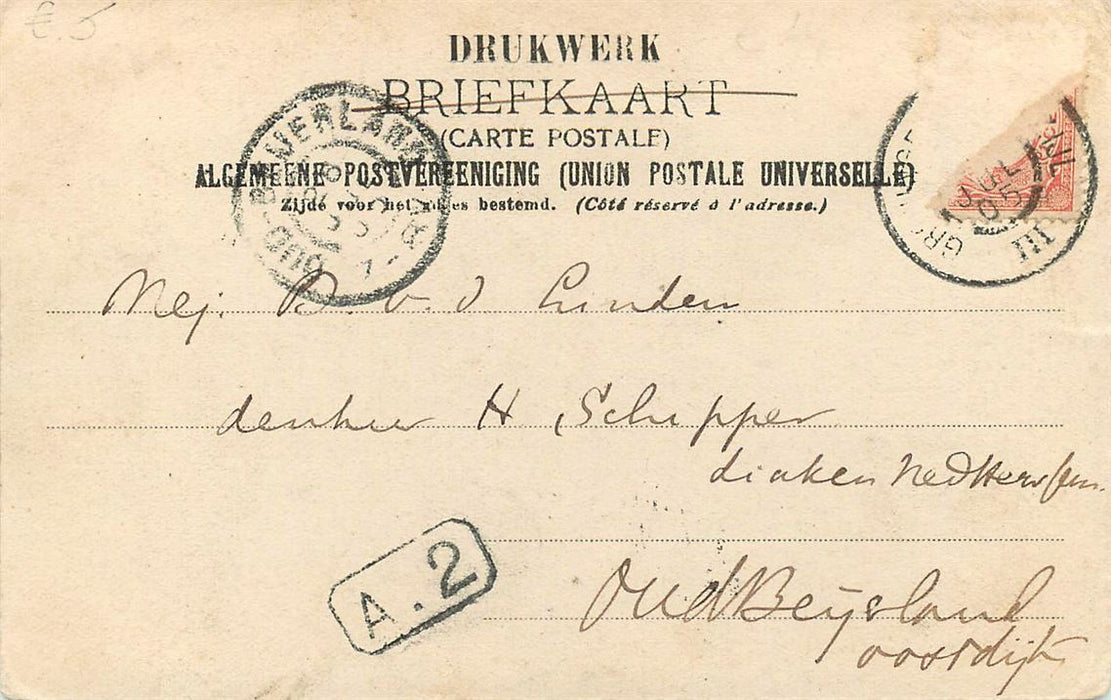 € 5
DRUKWERK
BRIEFKAART
(CARTE POSTALE)
ALGEMEENE POSTVEREENIGING (UNION POSTALE UNIVERSELLE)
Zijde voor het adres bestemd. (Côté réservé à l'adresse.)
OUD-BEIJERLAND
Mej. B. v. d Linden
denheer H Schipper
diaken Ned Herv Gem.
A. 2
OudBeyerland
oostdijk